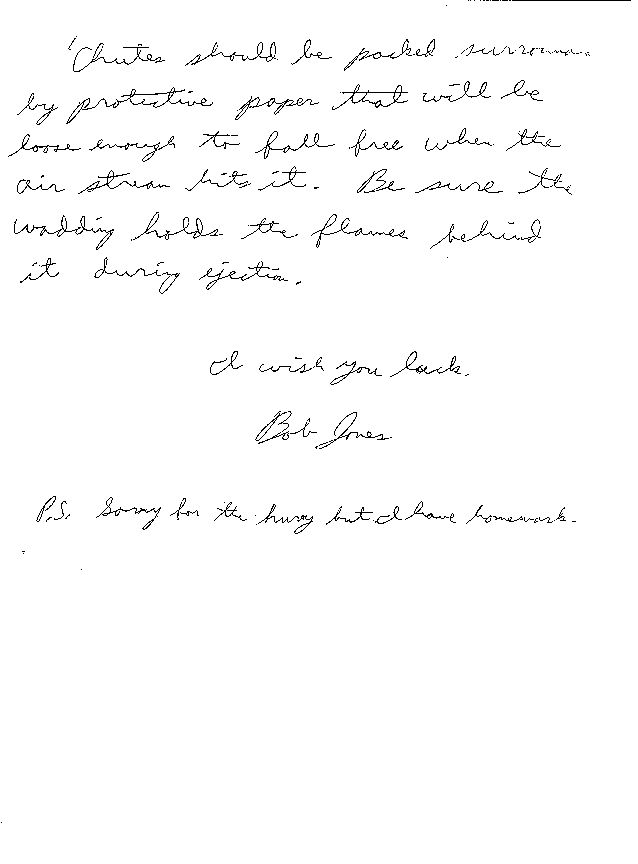 'Chutes should be packed
by protective paper that will be
loose enough to fall free when the
air stream hits it. Be sure the
wadding holds the flames behind
it during ejection.
I wish you luck.
Bob Jones
P.S. Sorry for the hurry but I have homework.